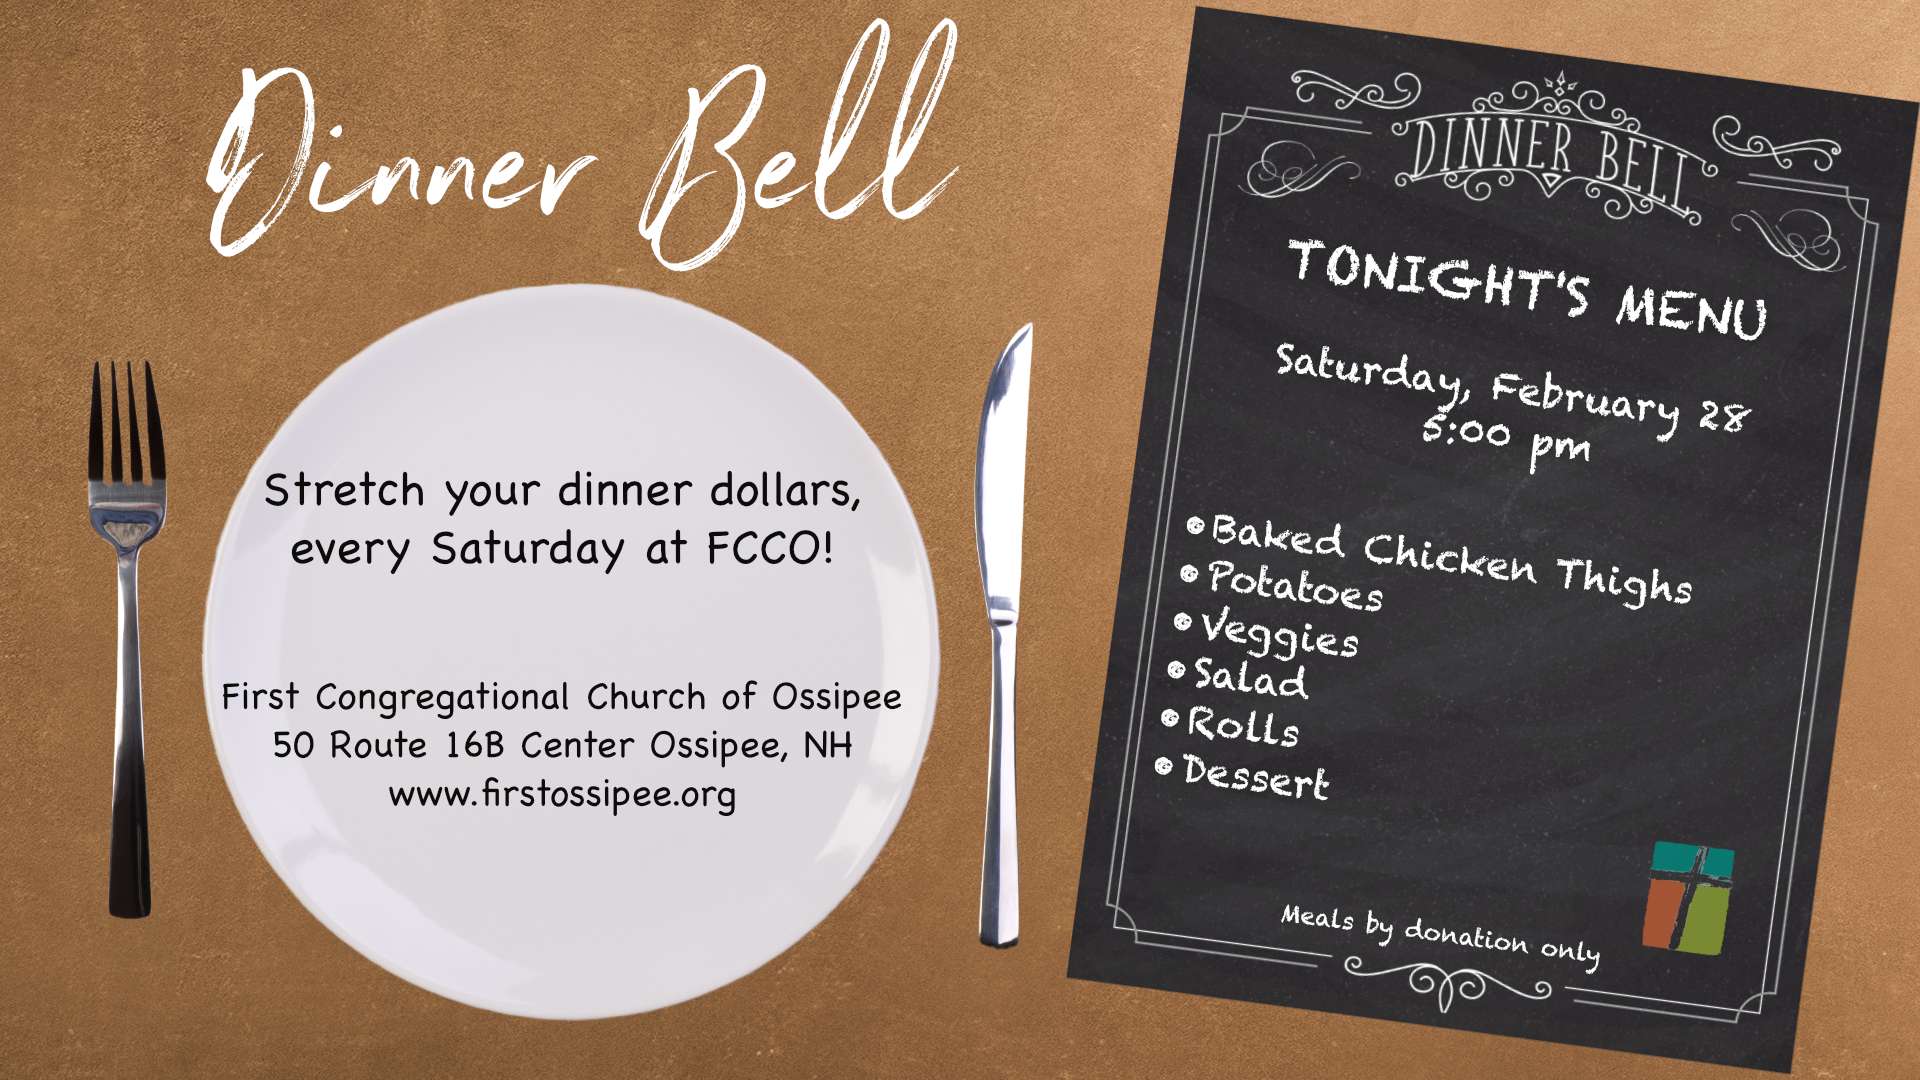 Dinner Bell
Stretch your dinner dollars,
every Saturday at FCCO!
First Congregational Church of Ossipee
50 Route 16B Center Ossipee, NH
www.firstossipee.org
DINNER BELL
TONIGHT'S MENU
Saturday, February 28
5:00 pm
•Baked Chicken Thighs
•Potatoes
•Veggies
•Salad
•Rolls
•Dessert
Meals by donation only